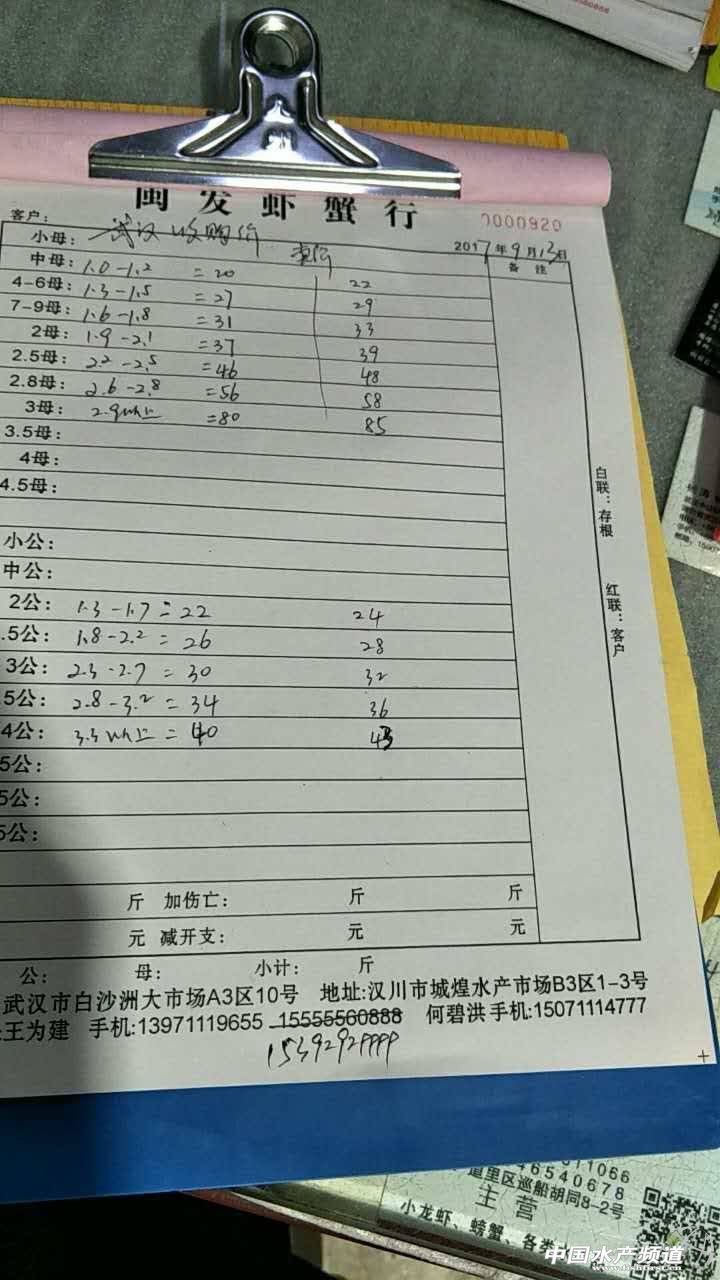 闽发虾蟹行
0000920
客户:
2017年9月13日
小母: 武汉收购价
备 注
中母: 1.0-1.2 =20 22
4-6母: 1.3-1.5 =27 29
7-9母: 1.6-1.8 =31 33
2母: 1.9-2.1 =37 39
2.5母: 2.2-2.5 =46 48
2.8母: 2.6-2.8 =56 58
3母: 2.9以上 =80 85
3.5母:
4母:
4.5母:
小公:
中公:
2公: 1.3-1.7=22 24
.5公: 1.8-2.2=26 28
3公: 2.3-2.7=30 32
5公: 2.8-3.2=34 36
4公: 3.3以上=40 43
5公:
5公:
5公:
斤 加伤亡: 斤 斤
元 减开支: 元 元
公: 母: 小计: 斤
武汉市白沙洲大市场A3区10号 地址:汉川市城煌水产市场B3区1-3号
王为建 手机:13971119655 15555560888 何碧洪手机:15071114777
15392929999
白联:存根
红联:客户
46540678
道里区巡船胡同8-2号
主营
小龙虾、螃蟹、各类
中国水产频道
www.fishfirst.cn